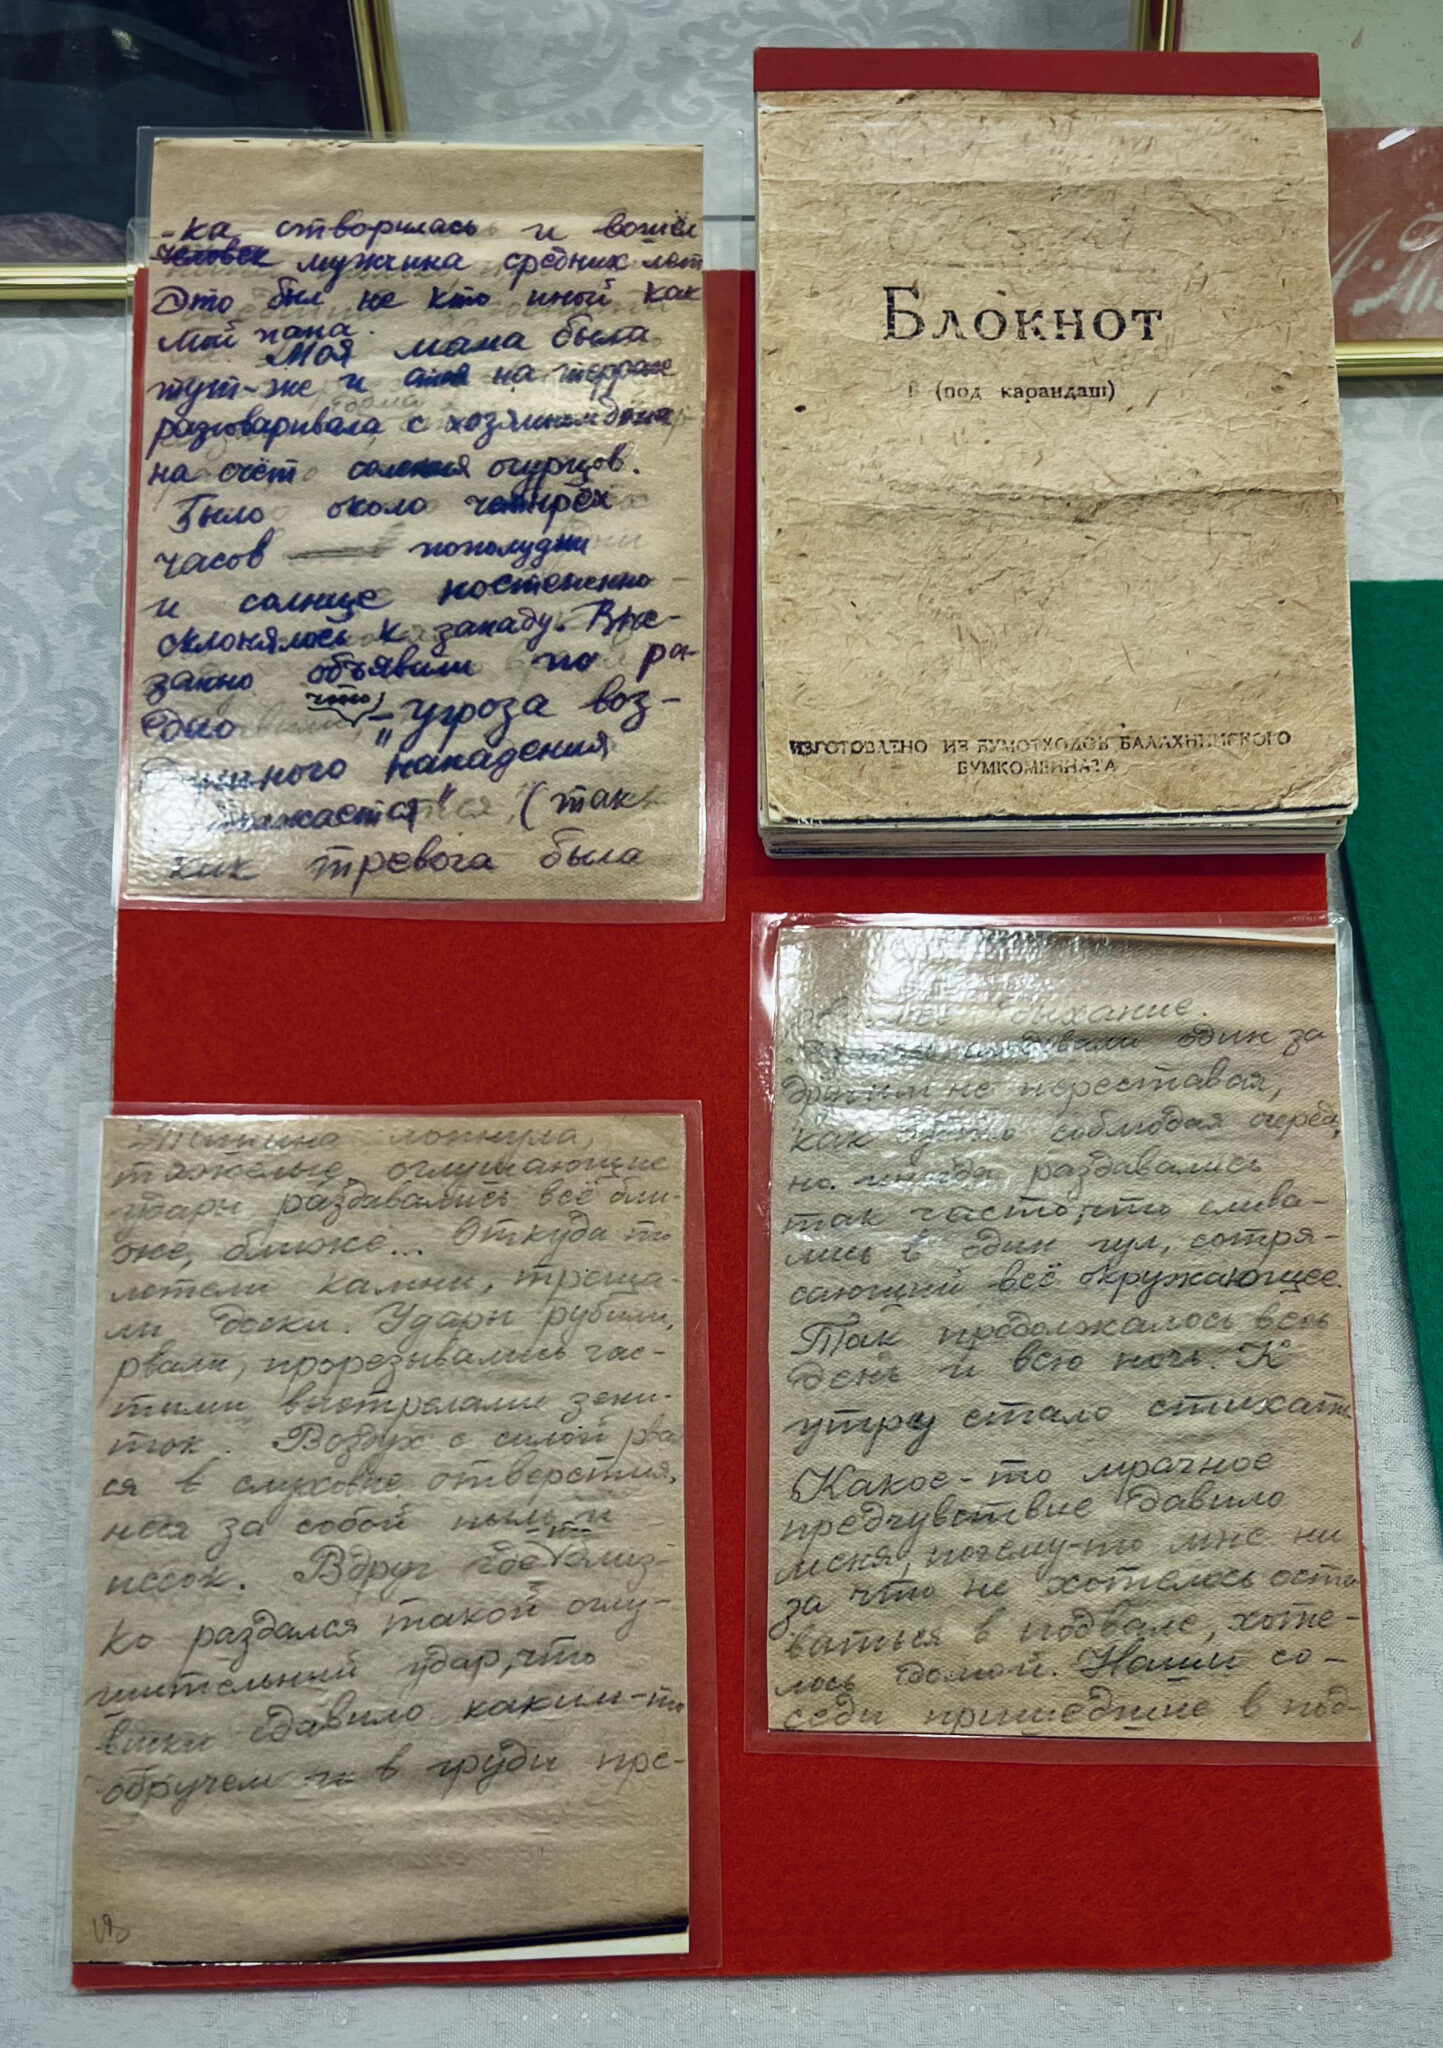 -ка створилась и вошёл
человек мужчина средних лет
Это был не кто иной как
мой папа.
Моя мама была
тут-же и на террасе
разговаривала с хозяином дома
на счёт соления огурцов.
Было около четырёх
часов пополудни
и солнце постепенно
склонялось к западу. Вне-
запно объявили по ра-
дио что, - угроза воз-
душного "нападения
" (так
как тревога была
Блокнот
(под карандаш)
ИЗГОТОВЛЕНО ИЗ БУМОТХОДОВ БАЛАХНИНСКОГО
БУМКОМБИНАТА
Тишина лопнула,
тяжёлые, оглушающие
удары раздавались всё бли-
же, ближе... Откуда то
летели камни, треща-
ли доски. Удары рубили,
рвали, прорезывались час-
тыми выстрелами зени-
ток. Воздух с силой рва
ся в слуховые отверстия,
неся за собой пыль и
песок. Вдруг где-то близ-
ко раздался такой оглу-
шительный удар, что
виски сдавило каким-то
обручем и в груди пре-
дыхание.
следовали один за
другим не переставая,
как будто соблюдая очередь,
но иногда раздавались
так часто, что слива-
лись в один гул, сотря-
сающий всё окружающее.
Так продолжалось весь
день и всю ночь. К
утру стало стихать
Какое-то мрачное
предчувствие давило
меня, почему-то мне ни
за что не хотелось оста
ваться в подвале, хоте-
лось домой. Наши со-
седи пришедшие в под-